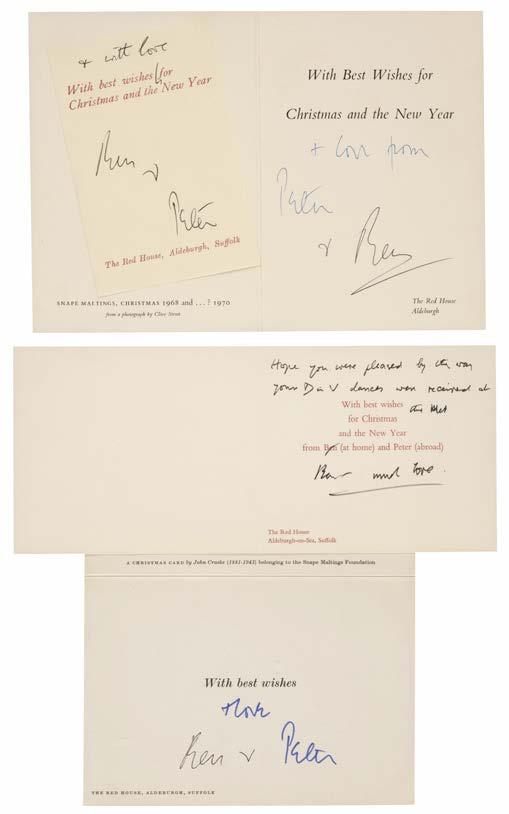 + with love
With best wishes for
Christmas and the New Year
Ben +
Peter
The Red House, Aldeburgh, Suffolk
SNAPE MALTINGS, CHRISTMAS 1968 and ... ? 1970
from a photograph by Clive Strutt
With Best Wishes for
Christmas and the New Year
+ love from
Peter
+ Ben
The Red House
Aldeburgh
Hope you were pleased by the way
your D in V dances were received at
the Met
With best wishes
for Christmas
and the New Year
from Ben (at home) and Peter (abroad)
Ben much love.
The Red House
Aldeburgh-on-Sea, Suffolk
A CHRISTMAS CARD by John Craske (1881-1943) belonging to the Snape Maltings Foundation
With best wishes
+ love
Ben + Peter
THE RED HOUSE, ALDEBURGH, SUFFOLK